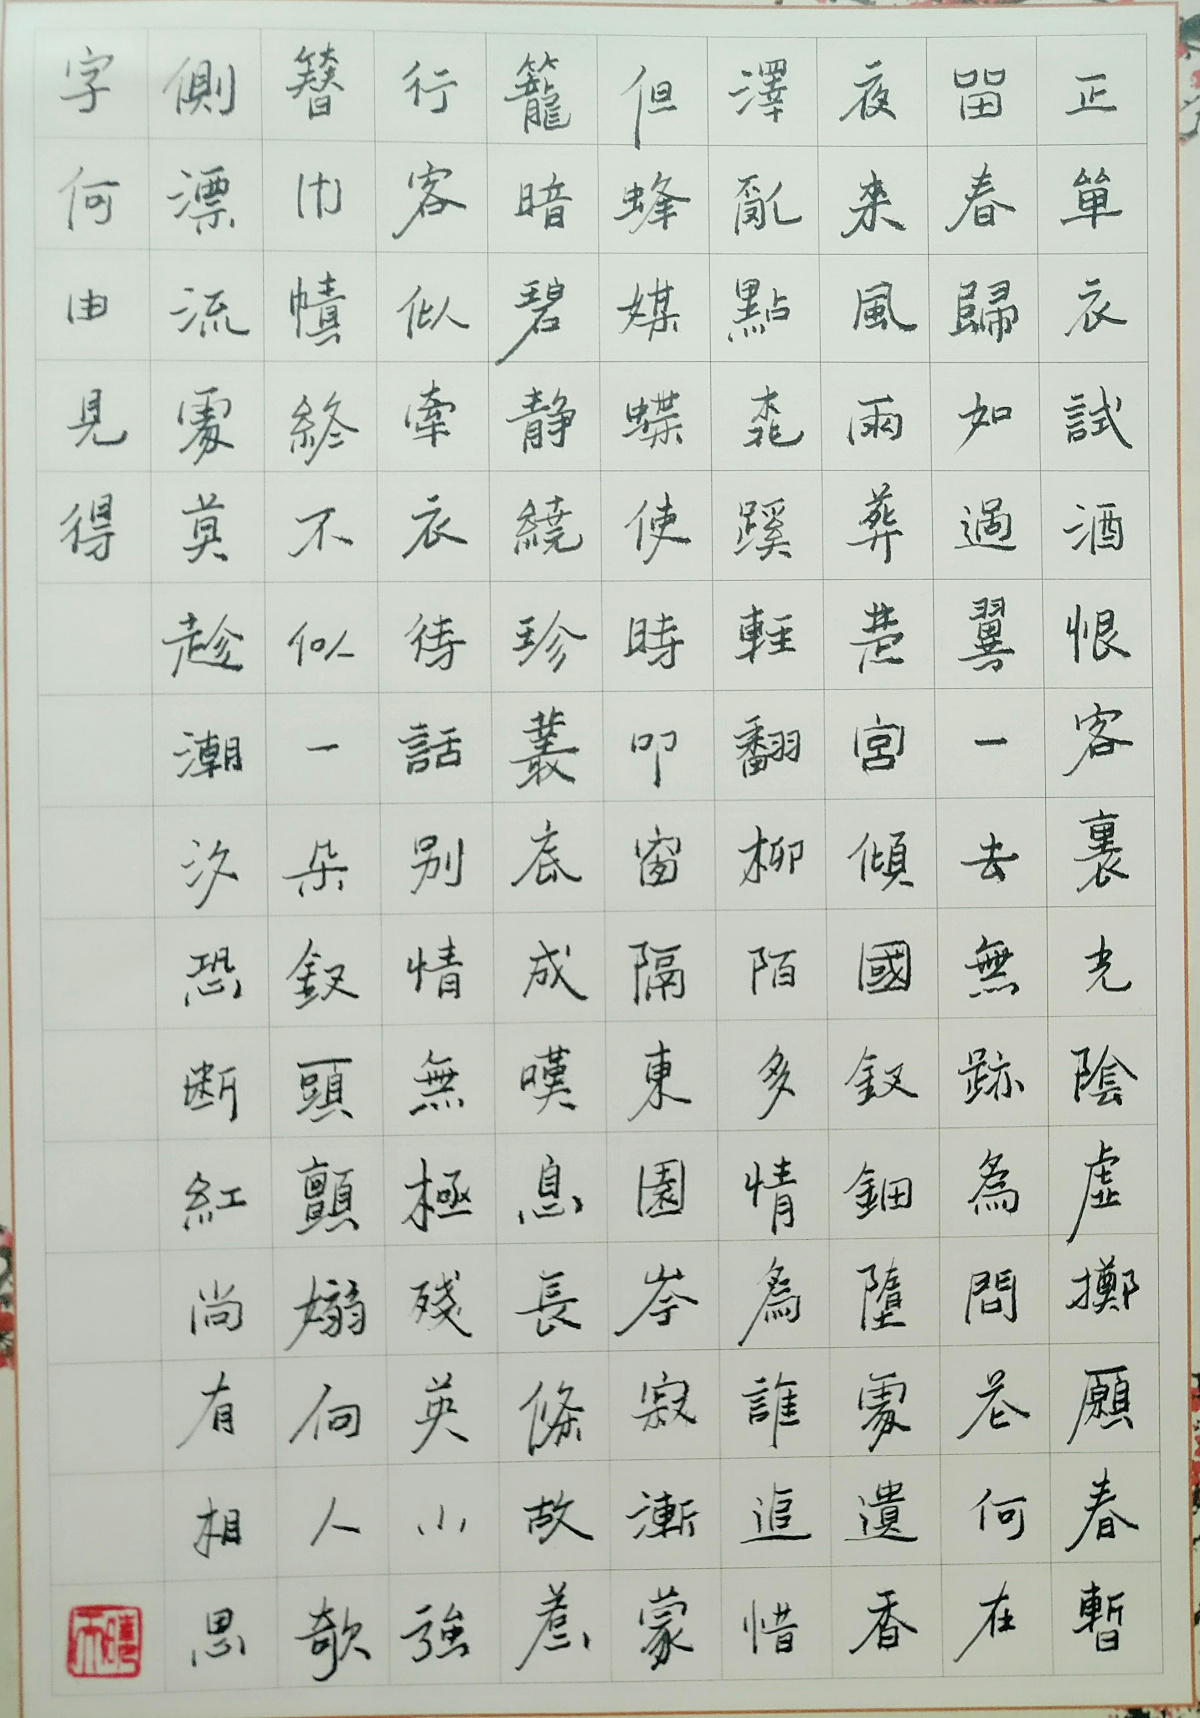 正單衣試酒恨客裏光陰虛擲願春暫
留春歸如過翼一去無跡為問花何在
夜來風雨葬楚宮傾國釵鈿墮處遺香
澤亂點桃蹊輕翻柳陌多情為誰追惜
但蜂媒蝶使時叩窗隔東園岑寂漸蒙
籠暗碧靜繞珍叢底成嘆息長條故惹
行客似牽衣待話別情無極殘英小強
簪巾幘終不似一朵釵頭顫嫋向人欹
側漂流處莫趁潮汐恐斷紅尚有相思
字何由見得